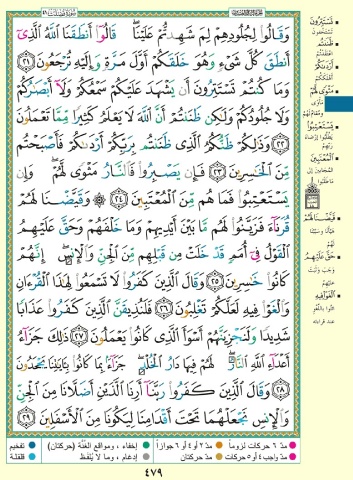 وَقَالُوا۟ لِجُلُودِهِمْ لِمَ شَهِدتُّمْ عَلَيْنَا ۖ قَالُوٓا۟ أَنطَقَنَا ٱللَّهُ ٱلَّذِىٓ
أَنطَقَ كُلَّ شَىْءٍ وَهُوَ خَلَقَكُمْ أَوَّلَ مَرَّةٍ وَإِلَيْهِ تُرْجَعُونَ ٢١
وَمَا كُنتُمْ تَسْتَتِرُونَ أَن يَشْهَدَ عَلَيْكُمْ سَمْعُكُمْ وَلَآ أَبْصَٰرُكُمْ
وَلَا جُلُودُكُمْ وَلَٰكِن ظَنَنتُمْ أَنَّ ٱللَّهَ لَا يَعْلَمُ كَثِيرًا مِّمَّا تَعْمَلُونَ
٢٢ وَذَٰلِكُمْ ظَنُّكُمُ ٱلَّذِى ظَنَنتُم بِرَبِّكُمْ أَرْدَىٰكُمْ فَأَصْبَحْتُم
مِّنَ ٱلْخَٰسِرِينَ ٢٣ فَإِن يَصْبِرُوا۟ فَٱلنَّارُ مَثْوًى لَّهُمْ ۖ وَإِن
يَسْتَعْتِبُوا۟ فَمَا هُم مِّنَ ٱلْمُعْتَبِينَ ٢٤ ۞ وَقَيَّضْنَا لَهُمْ
قُرَنَآءَ فَزَيَّنُوا۟ لَهُم مَّا بَيْنَ أَيْدِيهِمْ وَمَا خَلْفَهُمْ وَحَقَّ عَلَيْهِمُ
ٱلْقَوْلُ فِىٓ أُمَمٍ قَدْ خَلَتْ مِن قَبْلِهِم مِّنَ ٱلْجِنِّ وَٱلْإِنسِ ۖ إِنَّهُمْ
كَانُوا۟ خَٰسِرِينَ ٢٥ وَقَالَ ٱلَّذِينَ كَفَرُوا۟ لَا تَسْمَعُوا۟ لِهَٰذَا ٱلْقُرْءَانِ
وَٱلْغَوْا۟ فِيهِ لَعَلَّكُمْ تَغْلِبُونَ ٢٦ فَلَنُذِيقَنَّ ٱلَّذِينَ كَفَرُوا۟ عَذَابًا
شَدِيدًا وَلَنَجْزِيَنَّهُمْ أَسْوَأَ ٱلَّذِى كَانُوا۟ يَعْمَلُونَ ٢٧ ذَٰلِكَ جَزَآءُ
أَعْدَآءِ ٱللَّهِ ٱلنَّارُ ۖ لَهُمْ فِيهَا دَارُ ٱلْخُلْدِ ۖ جَزَآءًۢ بِمَا كَانُوا۟ بِـَٔايَٰتِنَا يَجْحَدُونَ
٢٨ وَقَالَ ٱلَّذِينَ كَفَرُوا۟ رَبَّنَآ أَرِنَا ٱلَّذَيْنِ أَضَلَّانَا مِنَ ٱلْجِنِّ
وَٱلْإِنسِ نَجْعَلْهُمَا تَحْتَ أَقْدَامِنَا لِيَكُونَا مِنَ ٱلْأَسْفَلِينَ ٢٩
تَسْتَتِرُونَ
ظَنَنتُمْ
أَرْدَىٰكُمْ
أهلككم
مَثْوًى لَّهُمْ
يَسْتَعْتِبُوا۟
ٱلْمُعْتَبِينَ
وَقَيَّضْنَا لَهُمْ
حَقَّ عَلَيْهِمُ
ٱلْغَوْا۟ فِيهِ
مدّ ٦ حركات لزوماً
مدّ ٢ أو ٤ أو ٦ جوازاً
إخفاء، ومواقع الغنّة (حركتان)
تفخيم
مدّ واجب ٤ أو ٥ حركات
مدّ حركتان
إدغام، وما لا يُلفظ
قلقلة
٤٧٩